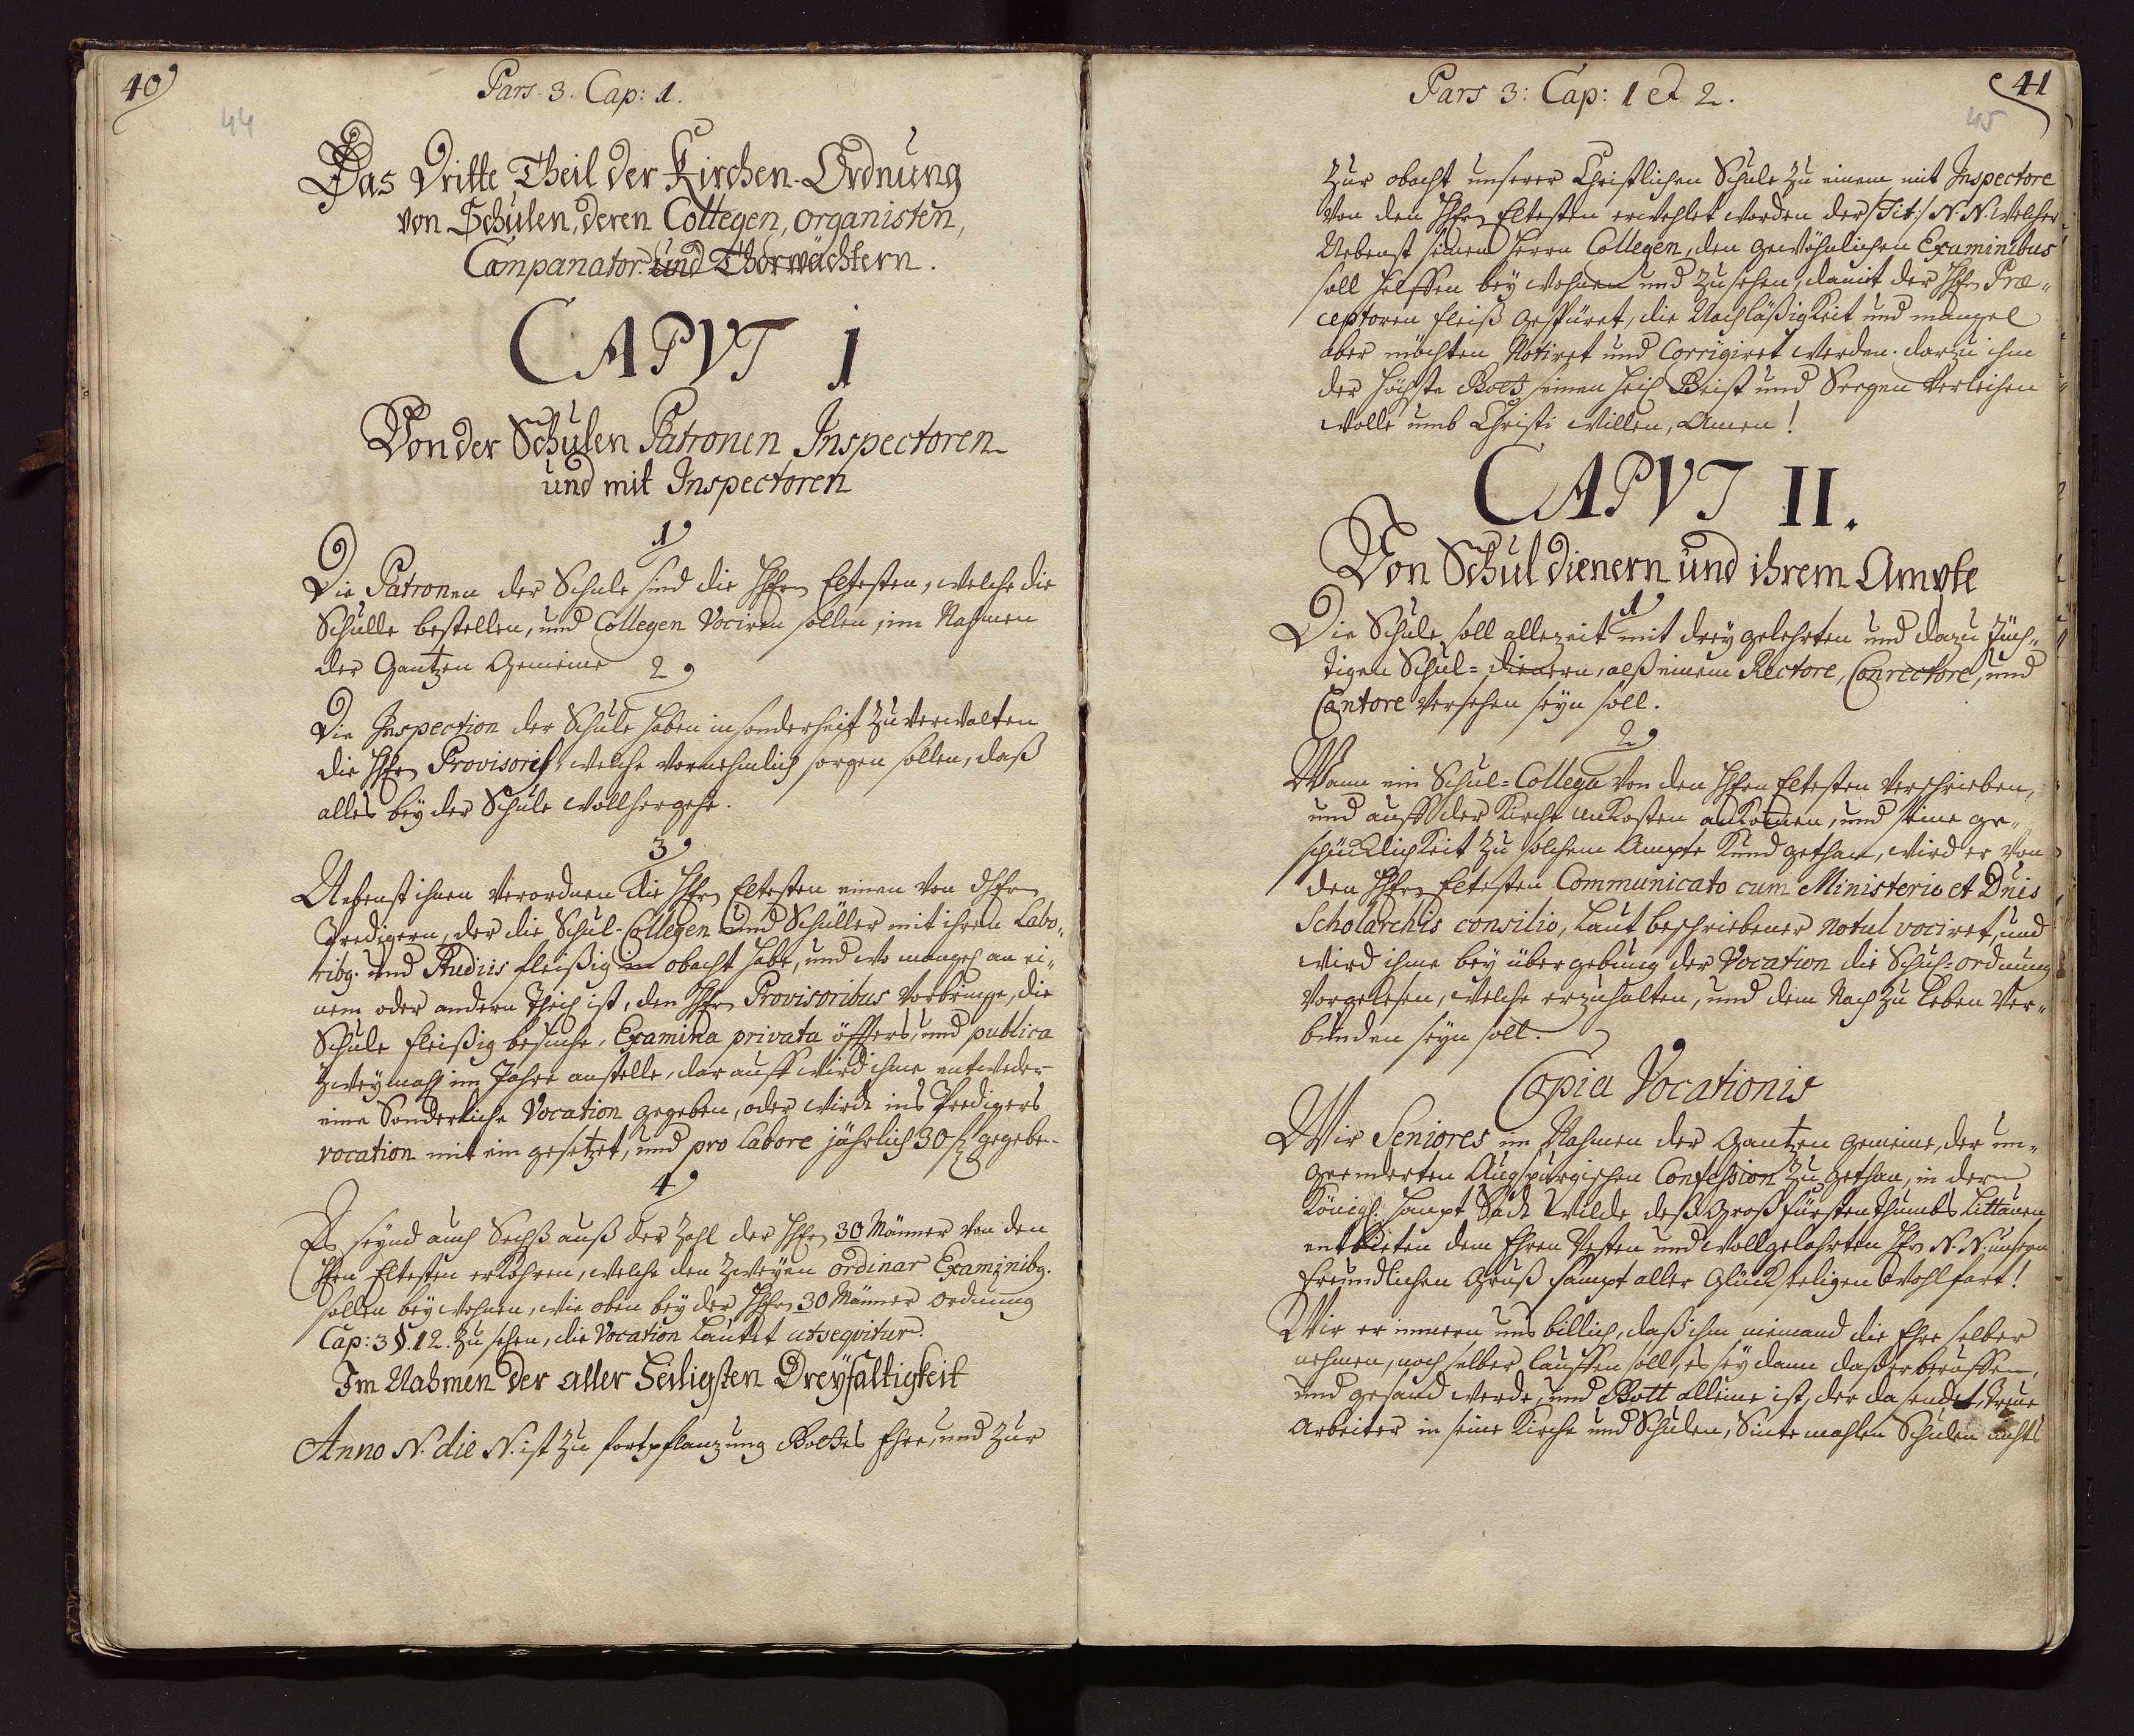 40
44
Pars. 3. Cap: 1.
Das Dritte Theil der Kirchen-Ordnung
von Schulen, deren Collegen, organisten,
Campanator. und Thorwächtern.
CAPVT 1
Von der Schulen Patronen Inspectoren
und mit Inspectoren
1
Die Patronen der Schule sind die HHrn Eltesten, welche die
Schulle bestellen, und Collegen Vociren sollen, im Nahmen
der Gantzen Gemeine
2
Die Inspection der Schule haben insonderheit zu verwalten
die HHrn Provisores, welche vornehmlich sorgen sollen, daß
alles bey der Schule wollhergehe.
3
Nebenst ihnen verordnen die HHrn Eltesten einen von dHHrn
Predigern, der die Schul-Collegen und Schüller mit ihren Labo-
ribg. und Studiis fleißig in obacht habe, und wo mangel an ei-
nem oder andern Theil ist, den HHrn Provisoribus vorbringe, die
Schule fleißig besuche, Examina privata öffters, und publica
zweymahl im Jahre anstelle, darauff wird ihme entweder
eine Sonderliche Vocation gegeben, oder wirdt ins Predigers
vocation mit ein gesetzet, und pro labore jährlich 30 fl gegebe-
4
Es seynd auch Sechß auß der Zahl der HHrn 30 Männer von den
HHrn Eltesten erkohren, welche den zweyen ordinar Examinibg.
sollen bey wohnen, wie oben bey der HHrn 30 Männer ordnung
Cap: 3 §. 12. zu sehen, die Vocation lautet utsequitur.
Im Nahmen der aller Heiligsten Dreyfaltigkeit
Anno N. die N. ist zu fortpflanzung Gottes Ehre, und zur
41
45
Pars 3: Cap: 1 et 2.
Zur obacht unserer Christlichen Schule zu einem mit Inspectore
von den HHrn Eltesten erwehlet worden der /Tit:/ N. N. welcher
Nebenst seinen Herrn Collegen, den gewöhnlichen Examinibus
soll helffen bey wohnen und zusehen, damit der HHrn Præ-
ceptoren fleiß gespüret, die Nachläßigkeit und mangel
aber möchten Notiret und Corrigiret werden. darzu ihm
der höchste Gott seinen heil Geist und Seegen verleihen
wolle umb Christi willen, Amen!
CAPVT II.
Von Schul dienern und ihrem Ampte
1
Die Schule soll allezeit mit drey gelehrten und dazu tüch-
tigen Schul-dienern, alß einem Rectore, Conrectore, und
Cantore versehen seyn soll.
2
Wann ein Schul-Collega von den HHrn Eltesten verschrieben,
und auff der Kirche unkosten ankomen, und seine ge-
schücklichkeit zu solchem Ampte Kund gethan, wird er von
den HHrn Eltesten Communicato cum Ministerio et Dnis
Scholarchis consilio, Laut beschriebener Notul vociret, und
wird ihme bey übergebung der Vocation die Schul-ordnung
vorgelesen, welche erzuhalten, und dem Nach zu leben ver-
bunden seyn soll.
Copia Vocationis
Wir Seniores im Nahmen der Gantzen Gemeine, der un-
geenderten Augspurgischen Confession zu gethan, in der
Königl. Haupt Stadt Wilde deß Großfürstenthumbs Littauen
entbieten dem Ehren Vesten und Wollgelahrten Hrn N. N. unsern
freundlichen Gruß sampt aller Glückseeligen Wohlfart!
Wir erinnern uns billich, daß ihm niemand die Ehre selber
nehmen, noch selber lauffen soll, es sey dann daß er beruffen,
und gesand werde, und Gott alleine ist, der da sendet, treue
Arbeiter in seine Kirche und Schulen, Sintemahlen Schulen nichts